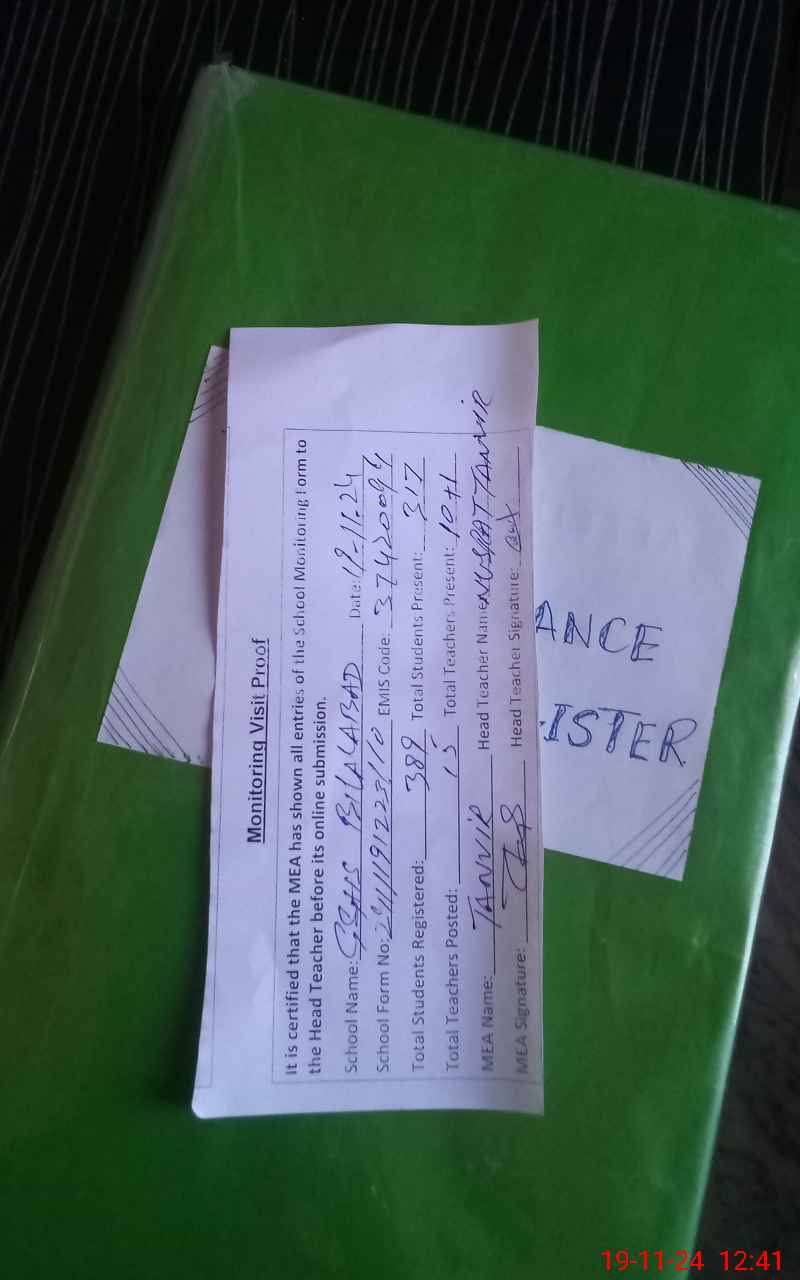 Monitoring Visit Proof
It is certified that the MEA has shown all entries of the School Monitoring Form to
the Head Teacher before its online submission.
School Name: GGHS BILALABAD Date: 19-11-24
School Form No: EMIS Code: 37420094
Total Students Registered: 389 Total Students Present: 317
Total Teachers Posted: 15 Total Teachers Present: 10+1
MEA Name: TANVIR Head Teacher Name NUSRAT TANVIR
MEA Signature: Head Teacher Signature:
ANCE
ISTER
19-11-24 12:41